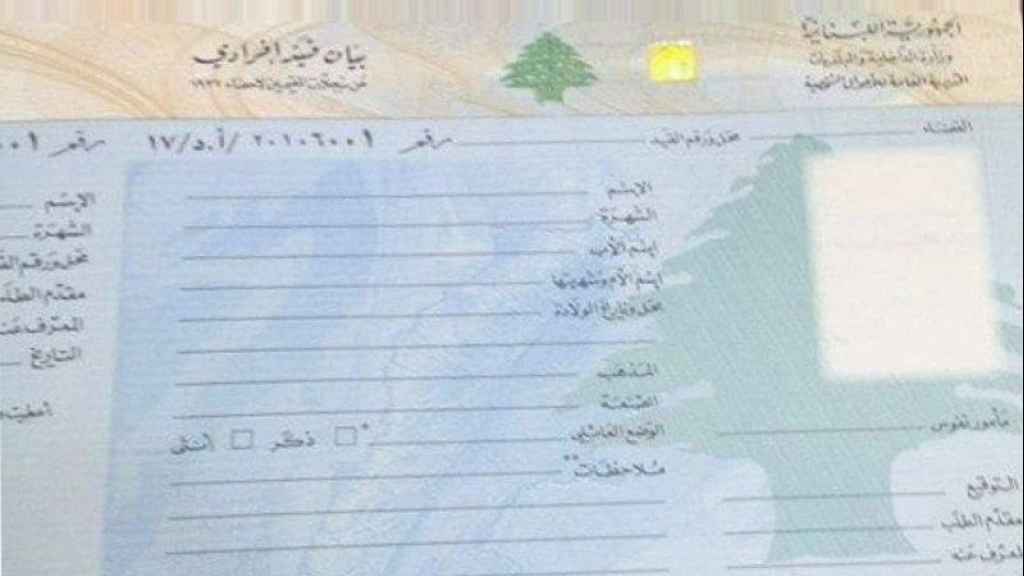 الجمهورية اللبنانية
وزارة الداخلية والبلديات
المديرية العامة للأحوال الشخصية
بيان قيد إفرادي
عن سجلات المقيمين لإحصاء ١٩٣٢
القضاء
محل ورقم القيد
رقم ٢٠١٠٦٠٠١ /أ.د/١٧
رقم
الإسم
الشهرة
إسم الأب
إسم الأم وشهرتها
محل وتاريخ الولادة
المذهب
الصيغة
الوضع العائلي
* ذكر
أنثى
ملاحظات**
مأمور نفوس
التوقيع
مقدّم الطلب
المعرّف عنه
الإسم
الشهرة
محل ورقم
مقدّم
المعرّف
التاريخ